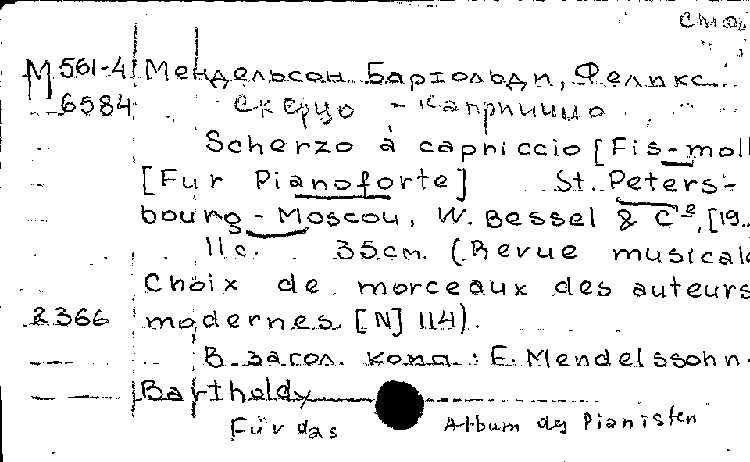 М 561-4 Мендельсон Бартольди, Феликс
6584 Скерцо - каприччио
Scherzo à capriccio [Fis-moll
[Fur Pianoforte] St. Peters-
bourg - Moscou, W. Bessel & Cie, [19..
11с. 35cm. (Revue musicale
Choix de morceaux des auteurs
2366 modernes [N] 114).
В загол. комп.: E. Mendelssohn-
Bartholdy
Für das Album des Pianisten